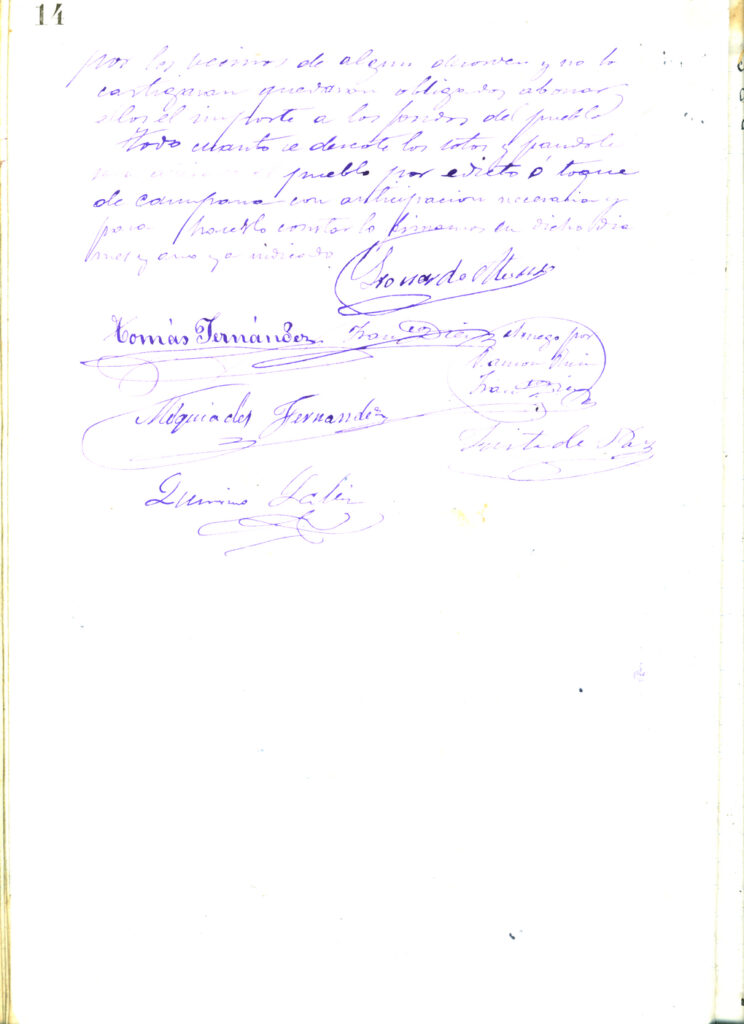 14
por los vecinos de algun desorden y no lo
castigaran quedaran obligados abonar
ellos el importe a los fondos del pueblo
Todo cuanto se denote los cotos y
pueblo por edicto ó toque
de campana con anticipacion necesaria y
para hacerlo constar lo firmamos en dicho dia
mes y año ya indicado
Leonardo
Tomás Fernández Franco Diez Arruego por
Ramon
Franco Diez
Melquiades Fernandez
de Diaz
Quirino